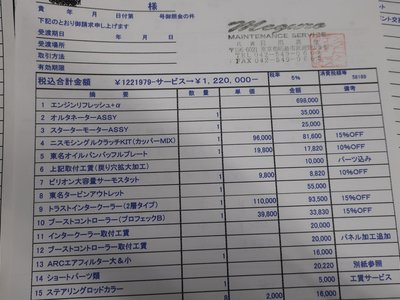 様
貴 年 月 日付第 号御照会の件
下記のとおり御請求申し上げます
受渡期日 年 月 日
受渡場所
取引方法
有効期限
Meguro
MAINTENANCE SERVICE
税込合計金額 ¥1221979-サービス→¥1,220,000- 税率 5% 消費税額等 58189
摘 要 数量 単価 金額 備考
1 エンジンリフレッシュ+α 698,000
2 オルタネーターASSY 1 35,000
3 スターターモーターASSY 1 25,000
4 ニスモシングルクラッチKIT(カッパーMIX) 1 96,000 81,600 15%OFF
5 東名オイルパンバッフルプレート 1 19,800 17,820 10%OFF
6 上記取付工賃(戻り穴拡大加工) 10,000 パーツ込み
7 ビリオン大容量サーモスタット 1 9,800 8,820 10%OFF
8 東名タービンアウトレット 1 55,000
9 トラストインタークーラー(2層タイプ) 1 110,000 93,500 15%OFF
10 ブーストコントローラー(プロフェックB) 1 39,800 33,830 15%OFF
11 インタークーラー取付工賃 20,000 パネル加工追加
12 ブーストコントローラー取付工賃 20,000
13 ARCエアフィルター大&小 1 16,000
14 ショートパーツ類 20,220 別紙参照
15 ステアリングロッドカラー 1 5,000 工賃サービス
8 2,000 16,000